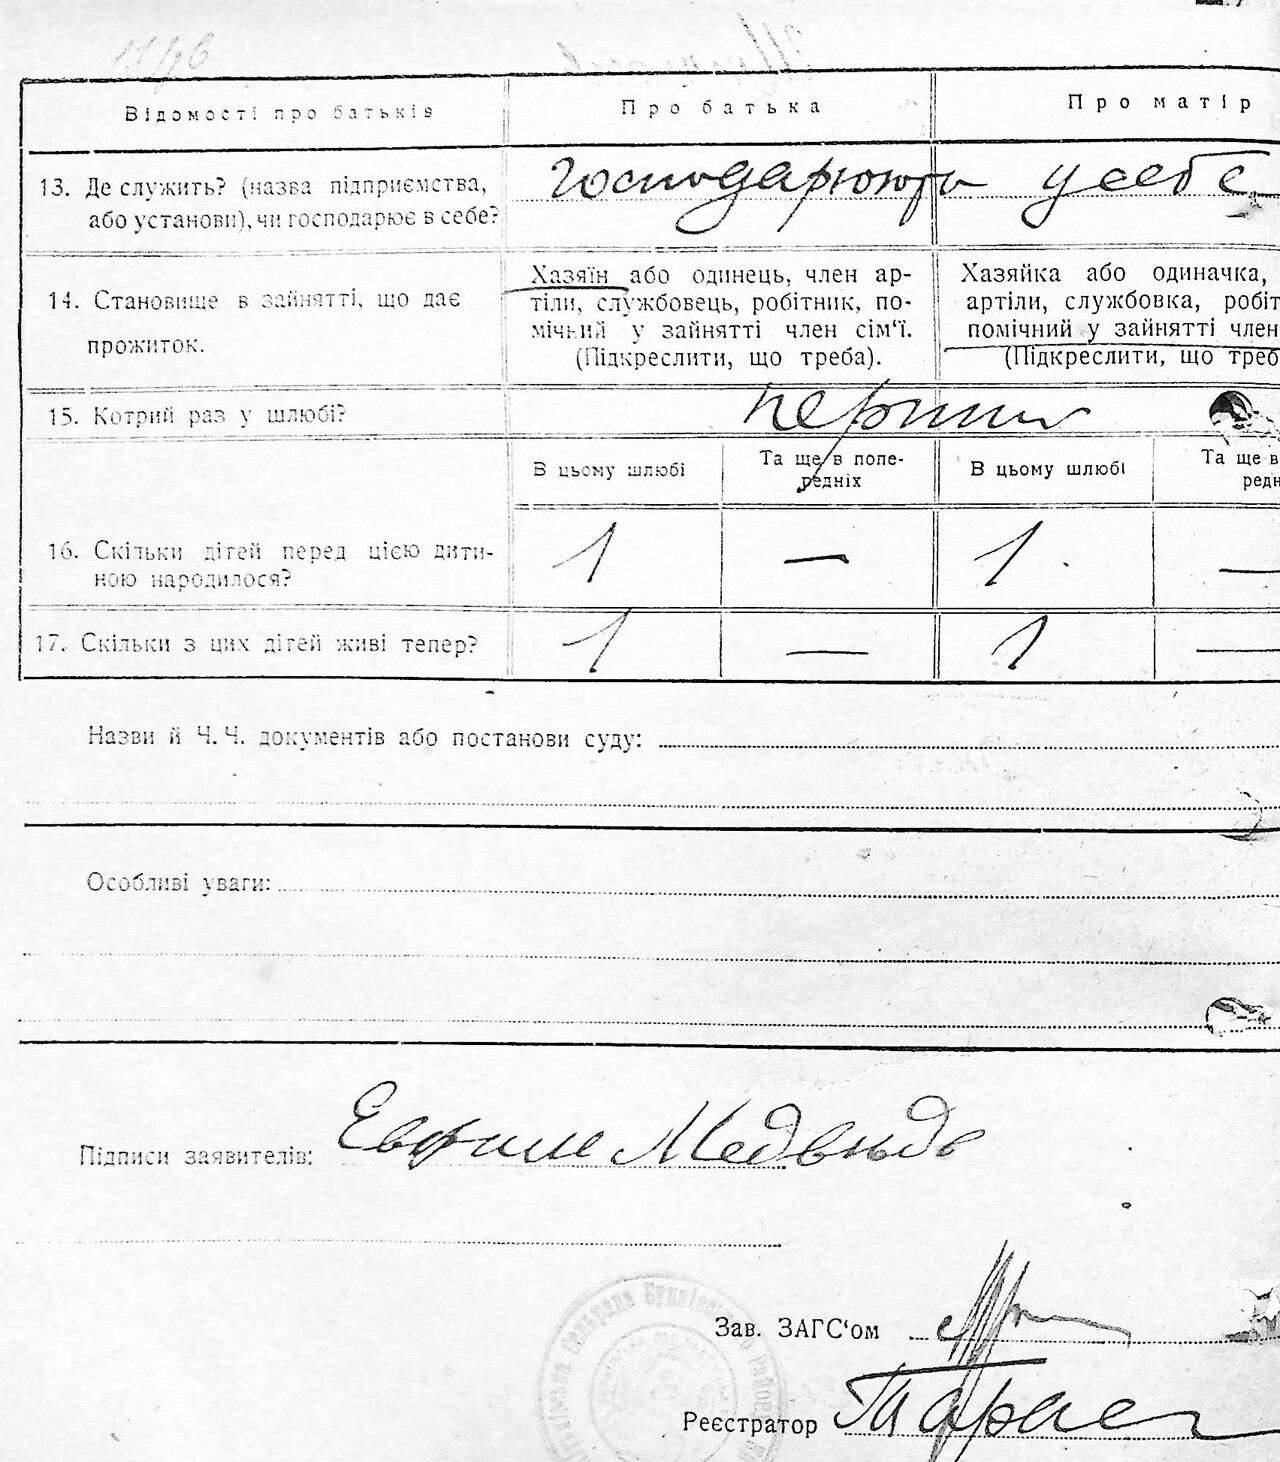 Відомості про батьків
Про батька
Про матір
13. Де служить? (назва підприємства,
або установи), чи господарює в себе?
господарюють у себе
14. Становище в зайнятті, що дає
прожиток.
Хазяїн або одинець, член ар-
тіли, службовець, робітник, по-
мічний у зайнятті член сім‘ї.
(Підкреслити, що треба).
Хазяйка або одиначка,
артіли, службовка, робіт
помічний у зайнятті член
(Підкреслити, що треб
15. Котрий раз у шлюбі?
В цьому шлюбі
Та ще в попе-
редніх
В цьому шлюбі
Та ще в
редн
16. Скільки дітей перед цією дити-
ною народилося?
1 — 1 —
17. Скільки з цих дітей живі тепер?
1 — 1 —
Назви й Ч. Ч. документів або постанови суду:
Особливі уваги:
Підписи заявителів: Медвъдь
Зав. ЗАГС‘ом
Реєстратор